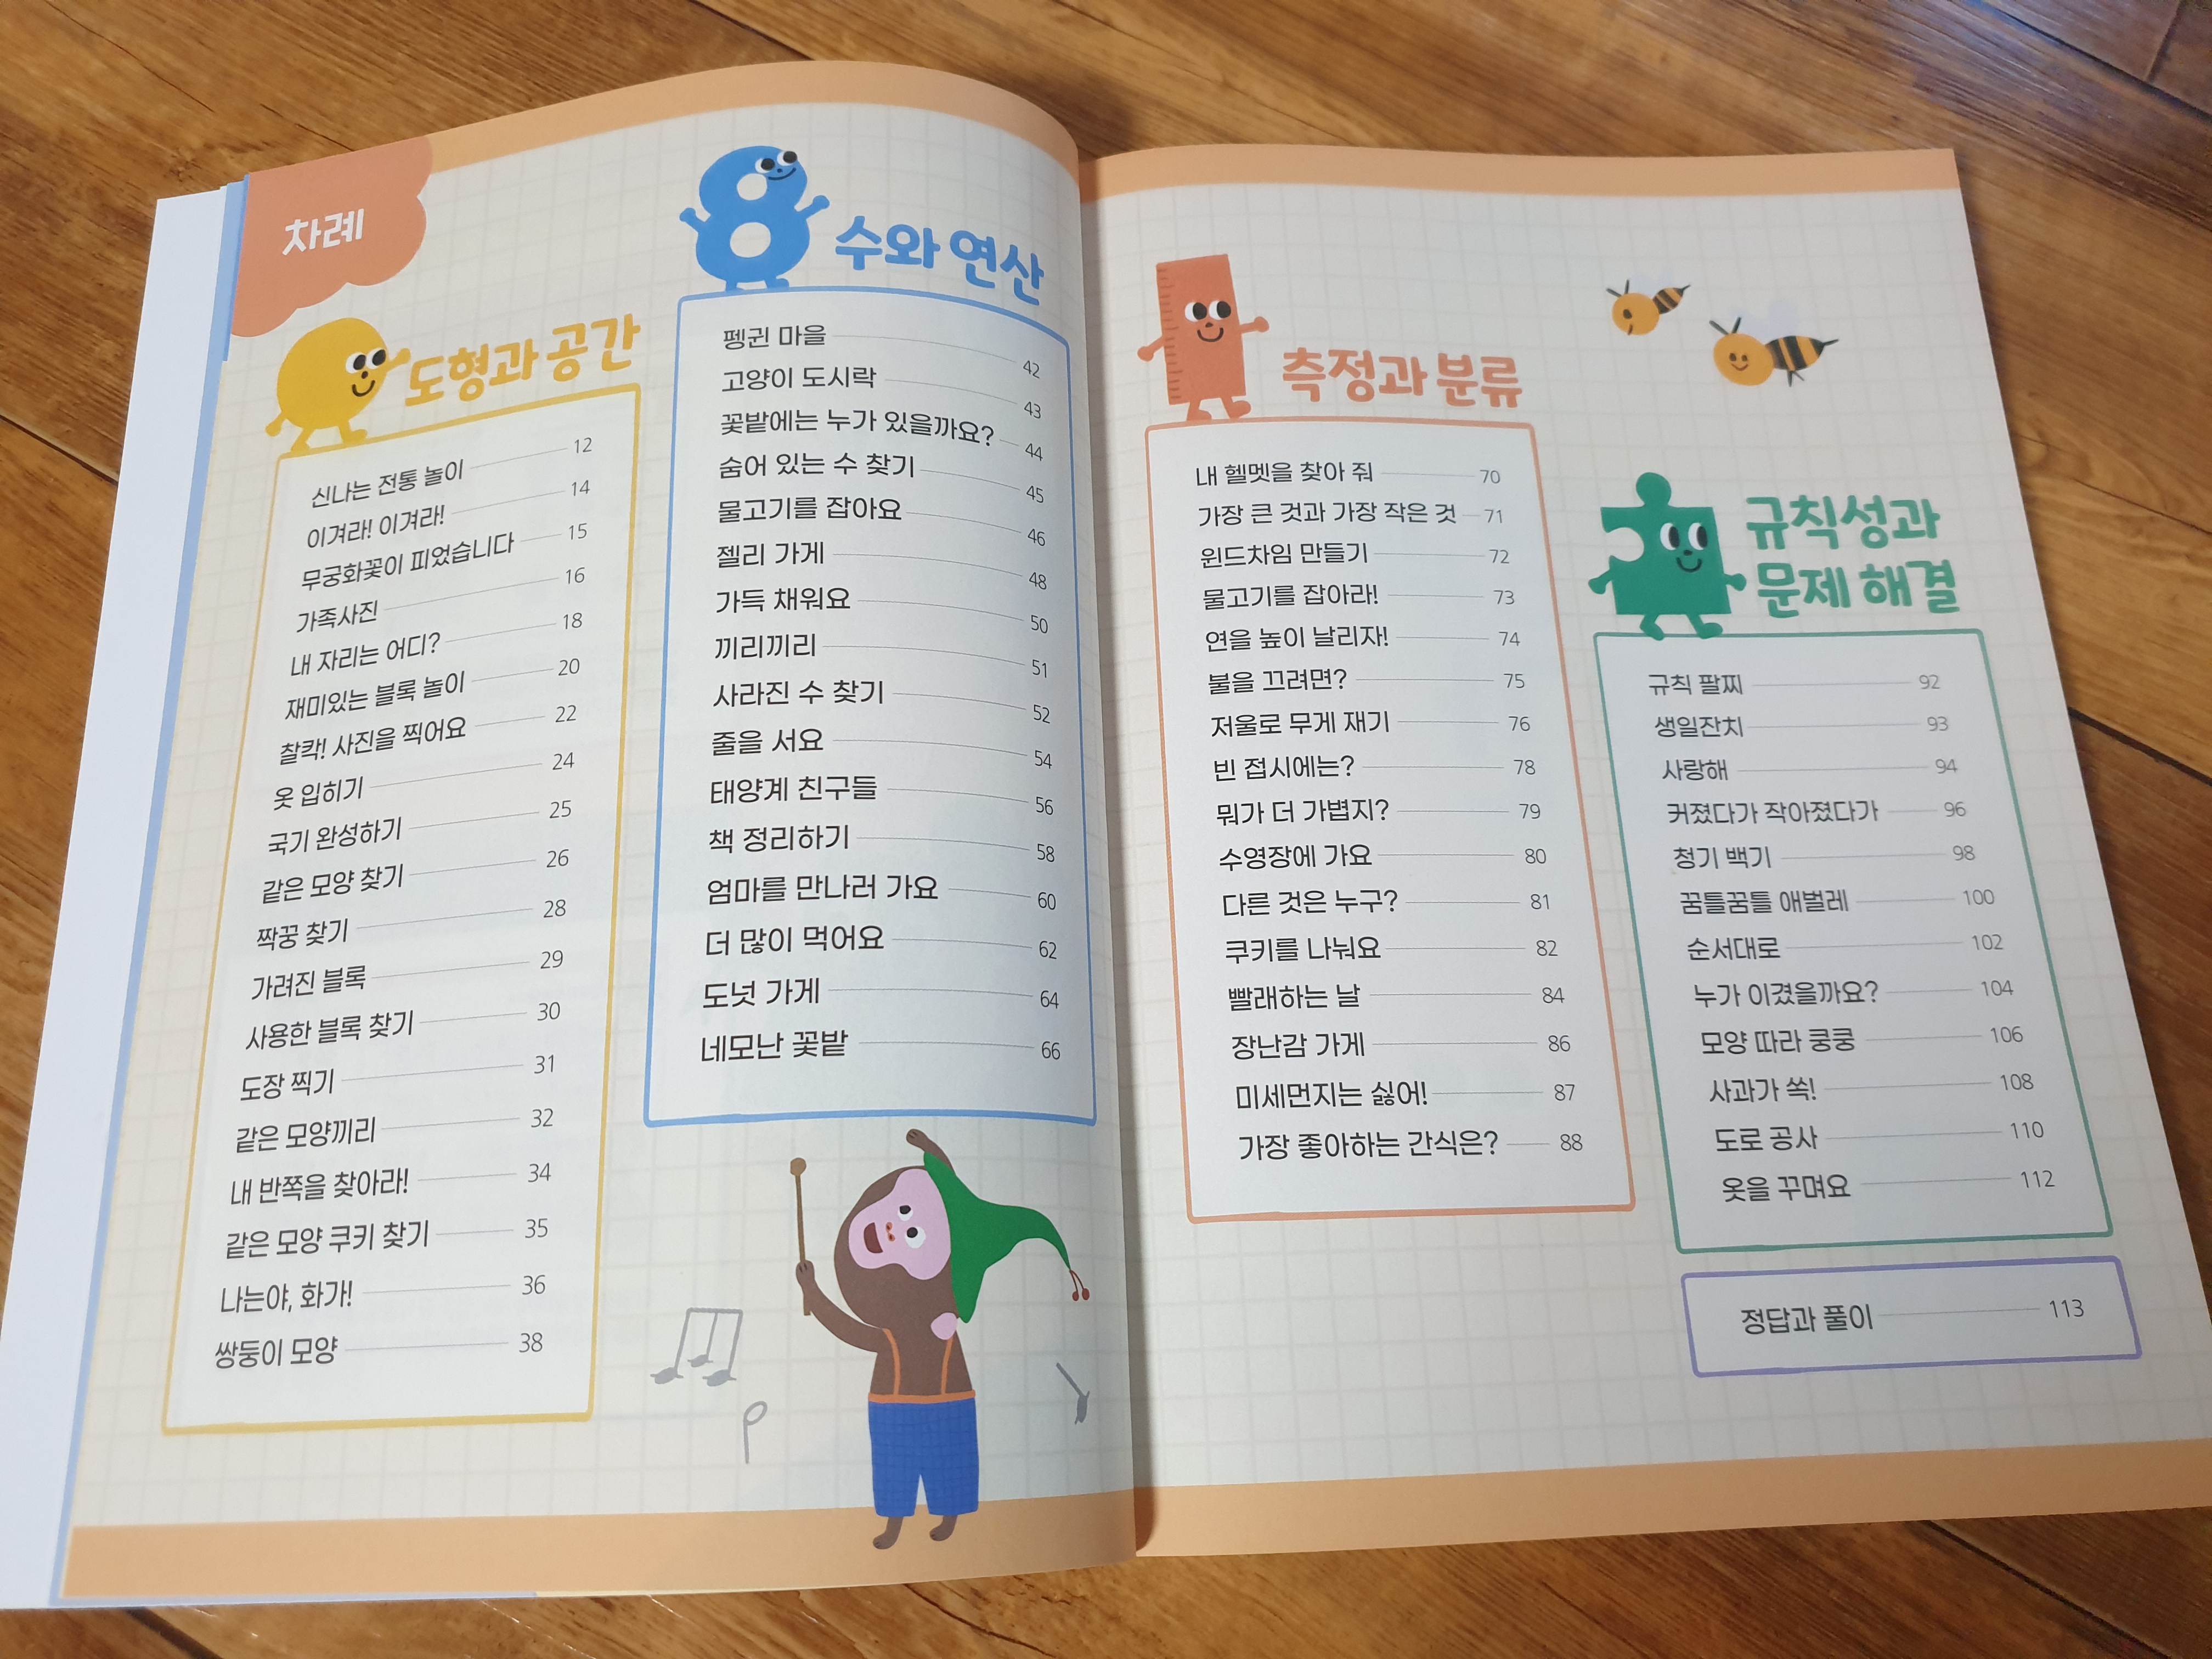 차례
도형과 공간
신나는 전통 놀이 12
이겨라! 이겨라! 14
무궁화꽃이 피었습니다 15
가족사진 16
내 자리는 어디? 18
재미있는 블록 놀이 20
찰칵! 사진을 찍어요 22
옷 입히기 24
국기 완성하기 25
같은 모양 찾기 26
짝꿍 찾기 28
가려진 블록 29
사용한 블록 찾기 30
도장 찍기 31
같은 모양끼리 32
내 반쪽을 찾아라! 34
같은 모양 쿠키 찾기 35
나는야, 화가! 36
쌍둥이 모양 38
수와 연산
펭귄 마을 42
고양이 도시락 43
꽃밭에는 누가 있을까요? 44
숨어 있는 수 찾기 45
물고기를 잡아요 46
젤리 가게 48
가득 채워요 50
끼리끼리 51
사라진 수 찾기 52
줄을 서요 54
태양계 친구들 56
책 정리하기 58
엄마를 만나러 가요 60
더 많이 먹어요 62
도넛 가게 64
네모난 꽃밭 66
측정과 분류
내 헬멧을 찾아 줘 70
가장 큰 것과 가장 작은 것 71
윈드차임 만들기 72
물고기를 잡아라! 73
연을 높이 날리자! 74
불을 끄려면? 75
저울로 무게 재기 76
빈 접시에는? 78
뭐가 더 가볍지? 79
수영장에 가요 80
다른 것은 누구? 81
쿠키를 나눠요 82
빨래하는 날 84
장난감 가게 86
미세먼지는 싫어! 87
가장 좋아하는 간식은? 88
규칙성과
문제 해결
규칙 팔찌 92
생일잔치 93
사랑해 94
커졌다가 작아졌다가 96
청기 백기 98
꿈틀꿈틀 애벌레 100
순서대로 102
누가 이겼을까요? 104
모양 따라 쿵쿵 106
사과가 쏙! 108
도로 공사 110
옷을 꾸며요 112
정답과 풀이 113